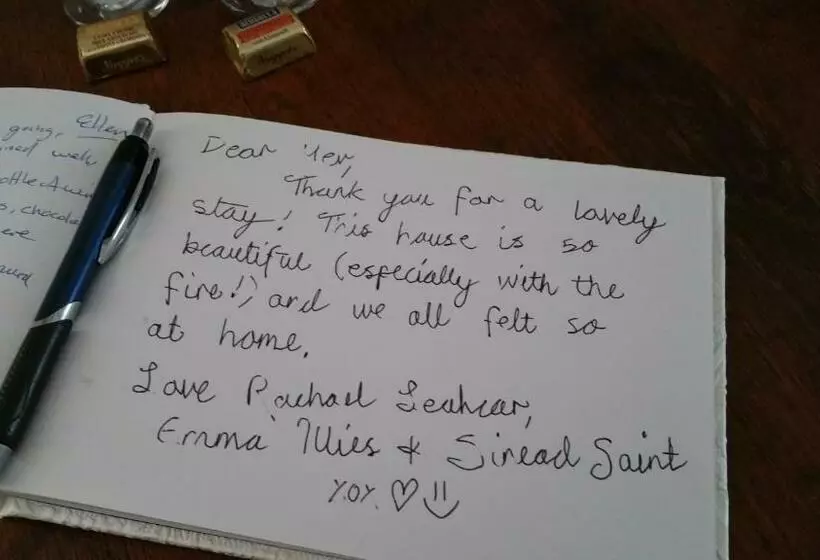 going, Ellen
well
chocola
Dear 'ler,
Thank you for a lovely
stay! This house is so
beautiful (especially with the
fire!) and we all felt so
at home.
Love Rachael Leahcar,
Emma & Sinead Saint
xox ♡ :)